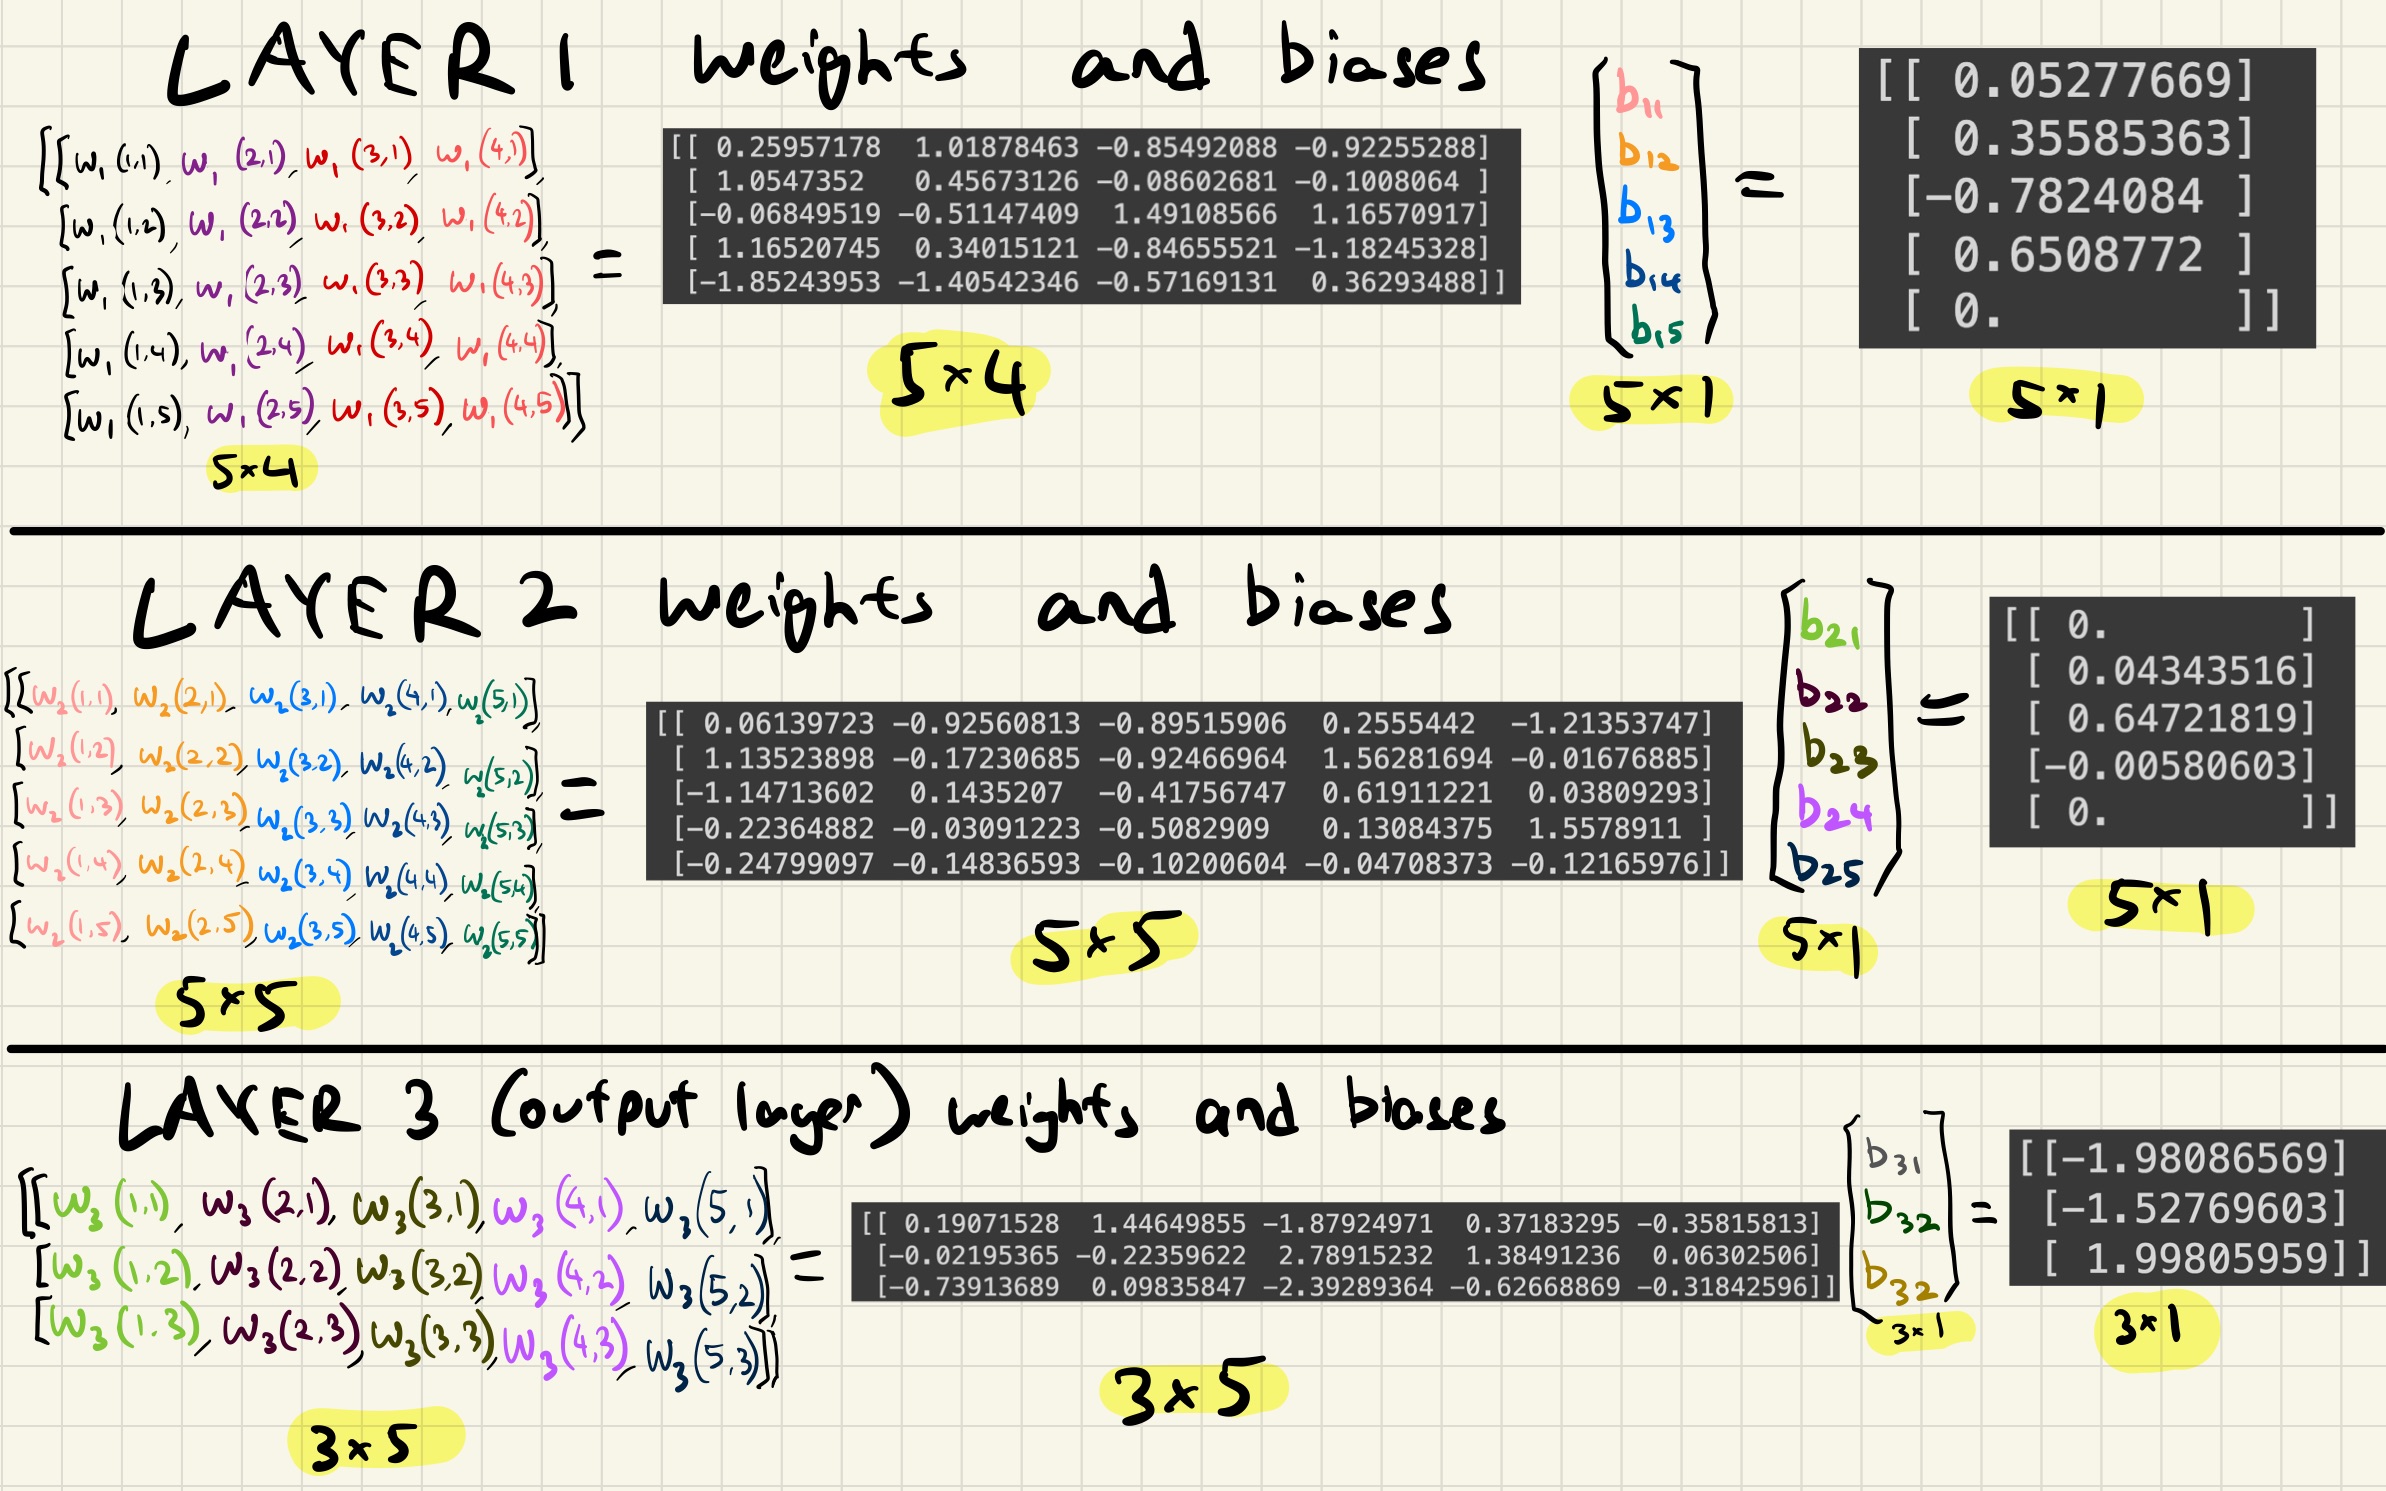 LAYER 1 weights and biases
[[w₁(1,1), w₁(2,1), w₁(3,1), w₁(4,1)],
[w₁(1,2), w₁(2,2), w₁(3,2), w₁(4,2)],
[w₁(1,3), w₁(2,3), w₁(3,3), w₁(4,3)],
[w₁(1,4), w₁(2,4), w₁(3,4), w₁(4,4)],
[w₁(1,5), w₁(2,5), w₁(3,5), w₁(4,5)]]
5×4
=
[[ 0.25957178 1.01878463 −0.85492088 −0.92255288]
[ 1.0547352 0.45673126 −0.08602681 −0.1008064 ]
[−0.06849519 −0.51147409 1.49108566 1.16570917]
[ 1.16520745 0.34015121 −0.84655521 −1.18245328]
[−1.85243953 −1.40542346 −0.57169131 0.36293488]]
5×4
b₁₁
b₁₂
b₁₃
b₁₄
b₁₅
5×1
=
[[ 0.05277669]
[ 0.35585363]
[−0.7824084 ]
[ 0.6508772 ]
[ 0. ]]
5×1
LAYER 2 weights and biases
[[w₂(1,1), w₂(2,1), w₂(3,1), w₂(4,1), w₂(5,1)],
[w₂(1,2), w₂(2,2), w₂(3,2), w₂(4,2), w₂(5,2)],
[w₂(1,3), w₂(2,3), w₂(3,3), w₂(4,3), w₂(5,3)],
[w₂(1,4), w₂(2,4), w₂(3,4), w₂(4,4), w₂(5,4)],
[w₂(1,5), w₂(2,5), w₂(3,5), w₂(4,5), w₂(5,5)]]
5×5
=
[[ 0.06139723 −0.92560813 −0.89515906 0.2555442 −1.21353747]
[ 1.13523898 −0.17230685 −0.92466964 1.56281694 −0.01676885]
[−1.14713602 0.1435207 −0.41756747 0.61911221 0.03809293]
[−0.22364882 −0.03091223 −0.5082909 0.13084375 1.5578911 ]
[−0.24799097 −0.14836593 −0.10200604 −0.04708373 −0.12165976]]
5×5
b₂₁
b₂₂
b₂₃
b₂₄
b₂₅
5×1
=
[[ 0. ]
[ 0.04343516]
[ 0.64721819]
[−0.00580603]
[ 0. ]]
5×1
LAYER 3 (output layer) weights and biases
[[w₃(1,1), w₃(2,1), w₃(3,1), w₃(4,1), w₃(5,1)],
[w₃(1,2), w₃(2,2), w₃(3,2), w₃(4,2), w₃(5,2)],
[w₃(1,3), w₃(2,3), w₃(3,3), w₃(4,3), w₃(5,3)]]
3×5
=
[[ 0.19071528 1.44649855 −1.87924971 0.37183295 −0.35815813]
[−0.02195365 −0.22359622 2.78915232 1.38491236 0.06302506]
[−0.73913689 0.09835847 −2.39289364 −0.62668869 −0.31842596]]
3×5
b₃₁
b₃₂
b₃₂
3×1
=
[[−1.98086569]
[−1.52769603]
[ 1.99805959]]
3×1